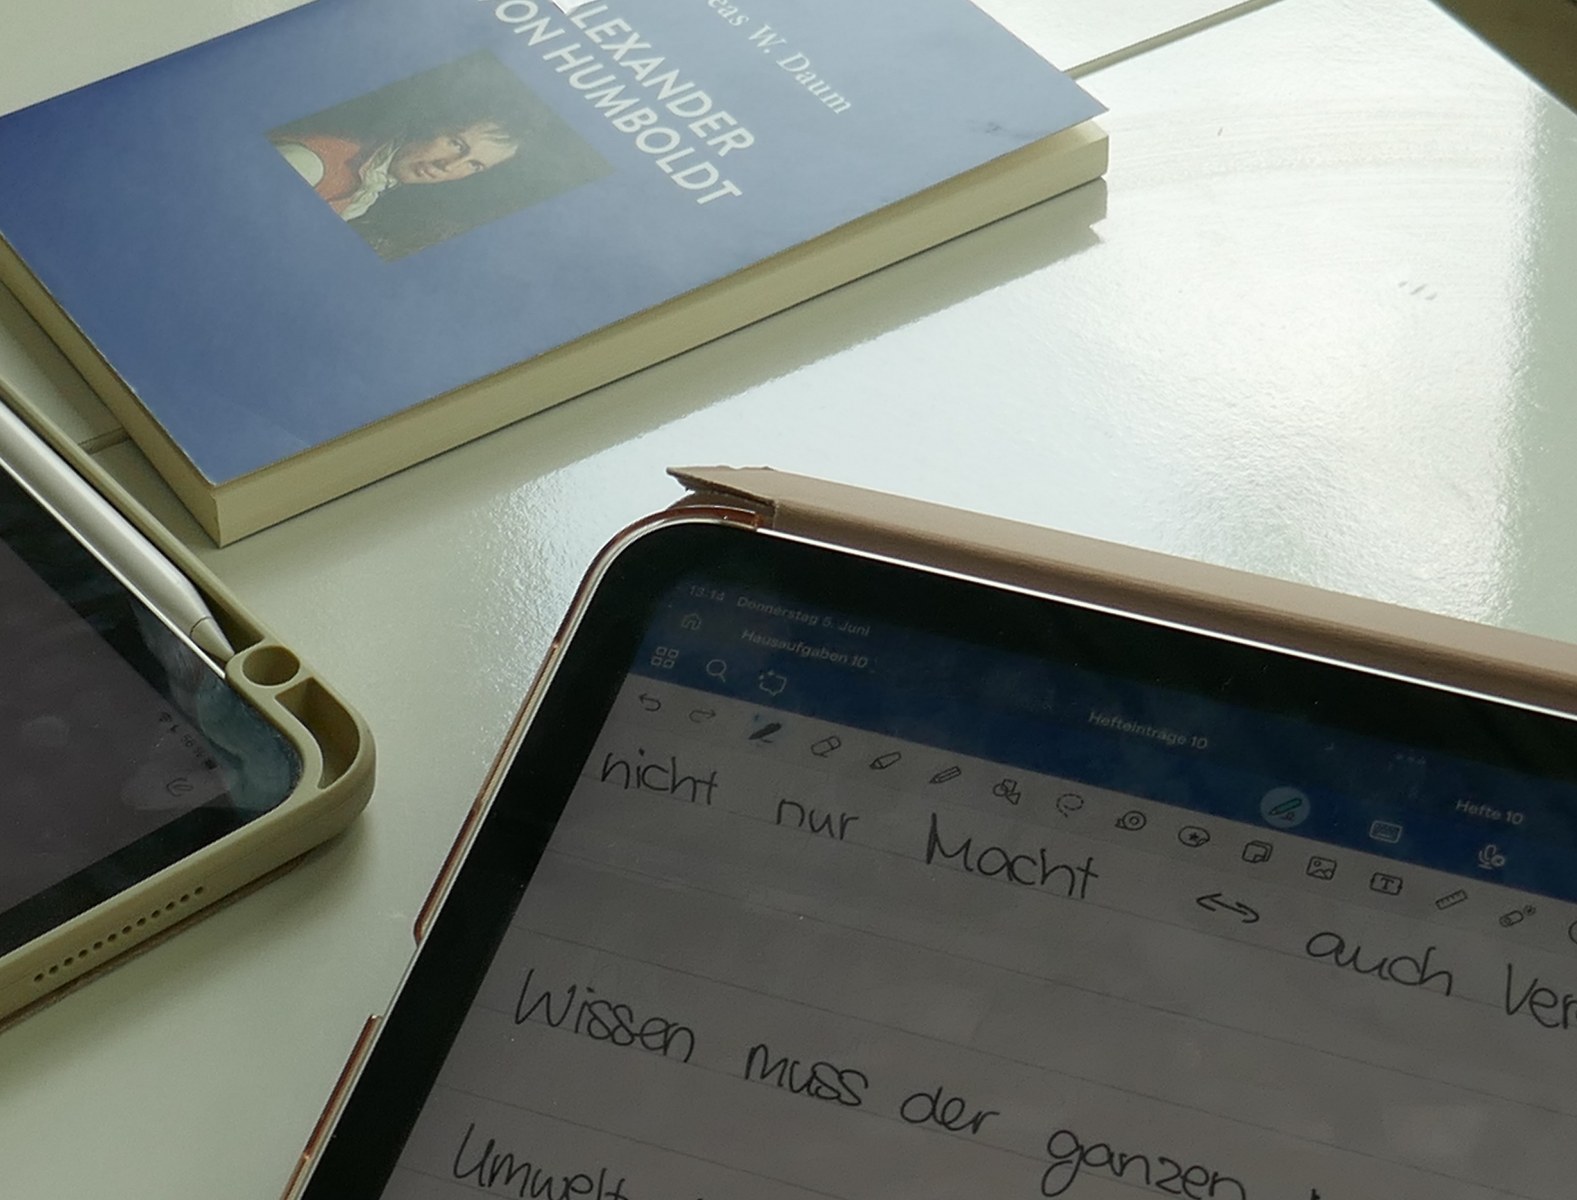 eas W. Daum
ALEXANDER
VON HUMBOLDT
Donnerstag 5. Juni
Hausaufgaben 10
Hefteinträge 10
Hefte 10
nicht nur Macht ↔ auch Ver
Wissen muss der ganzen
Umwelt